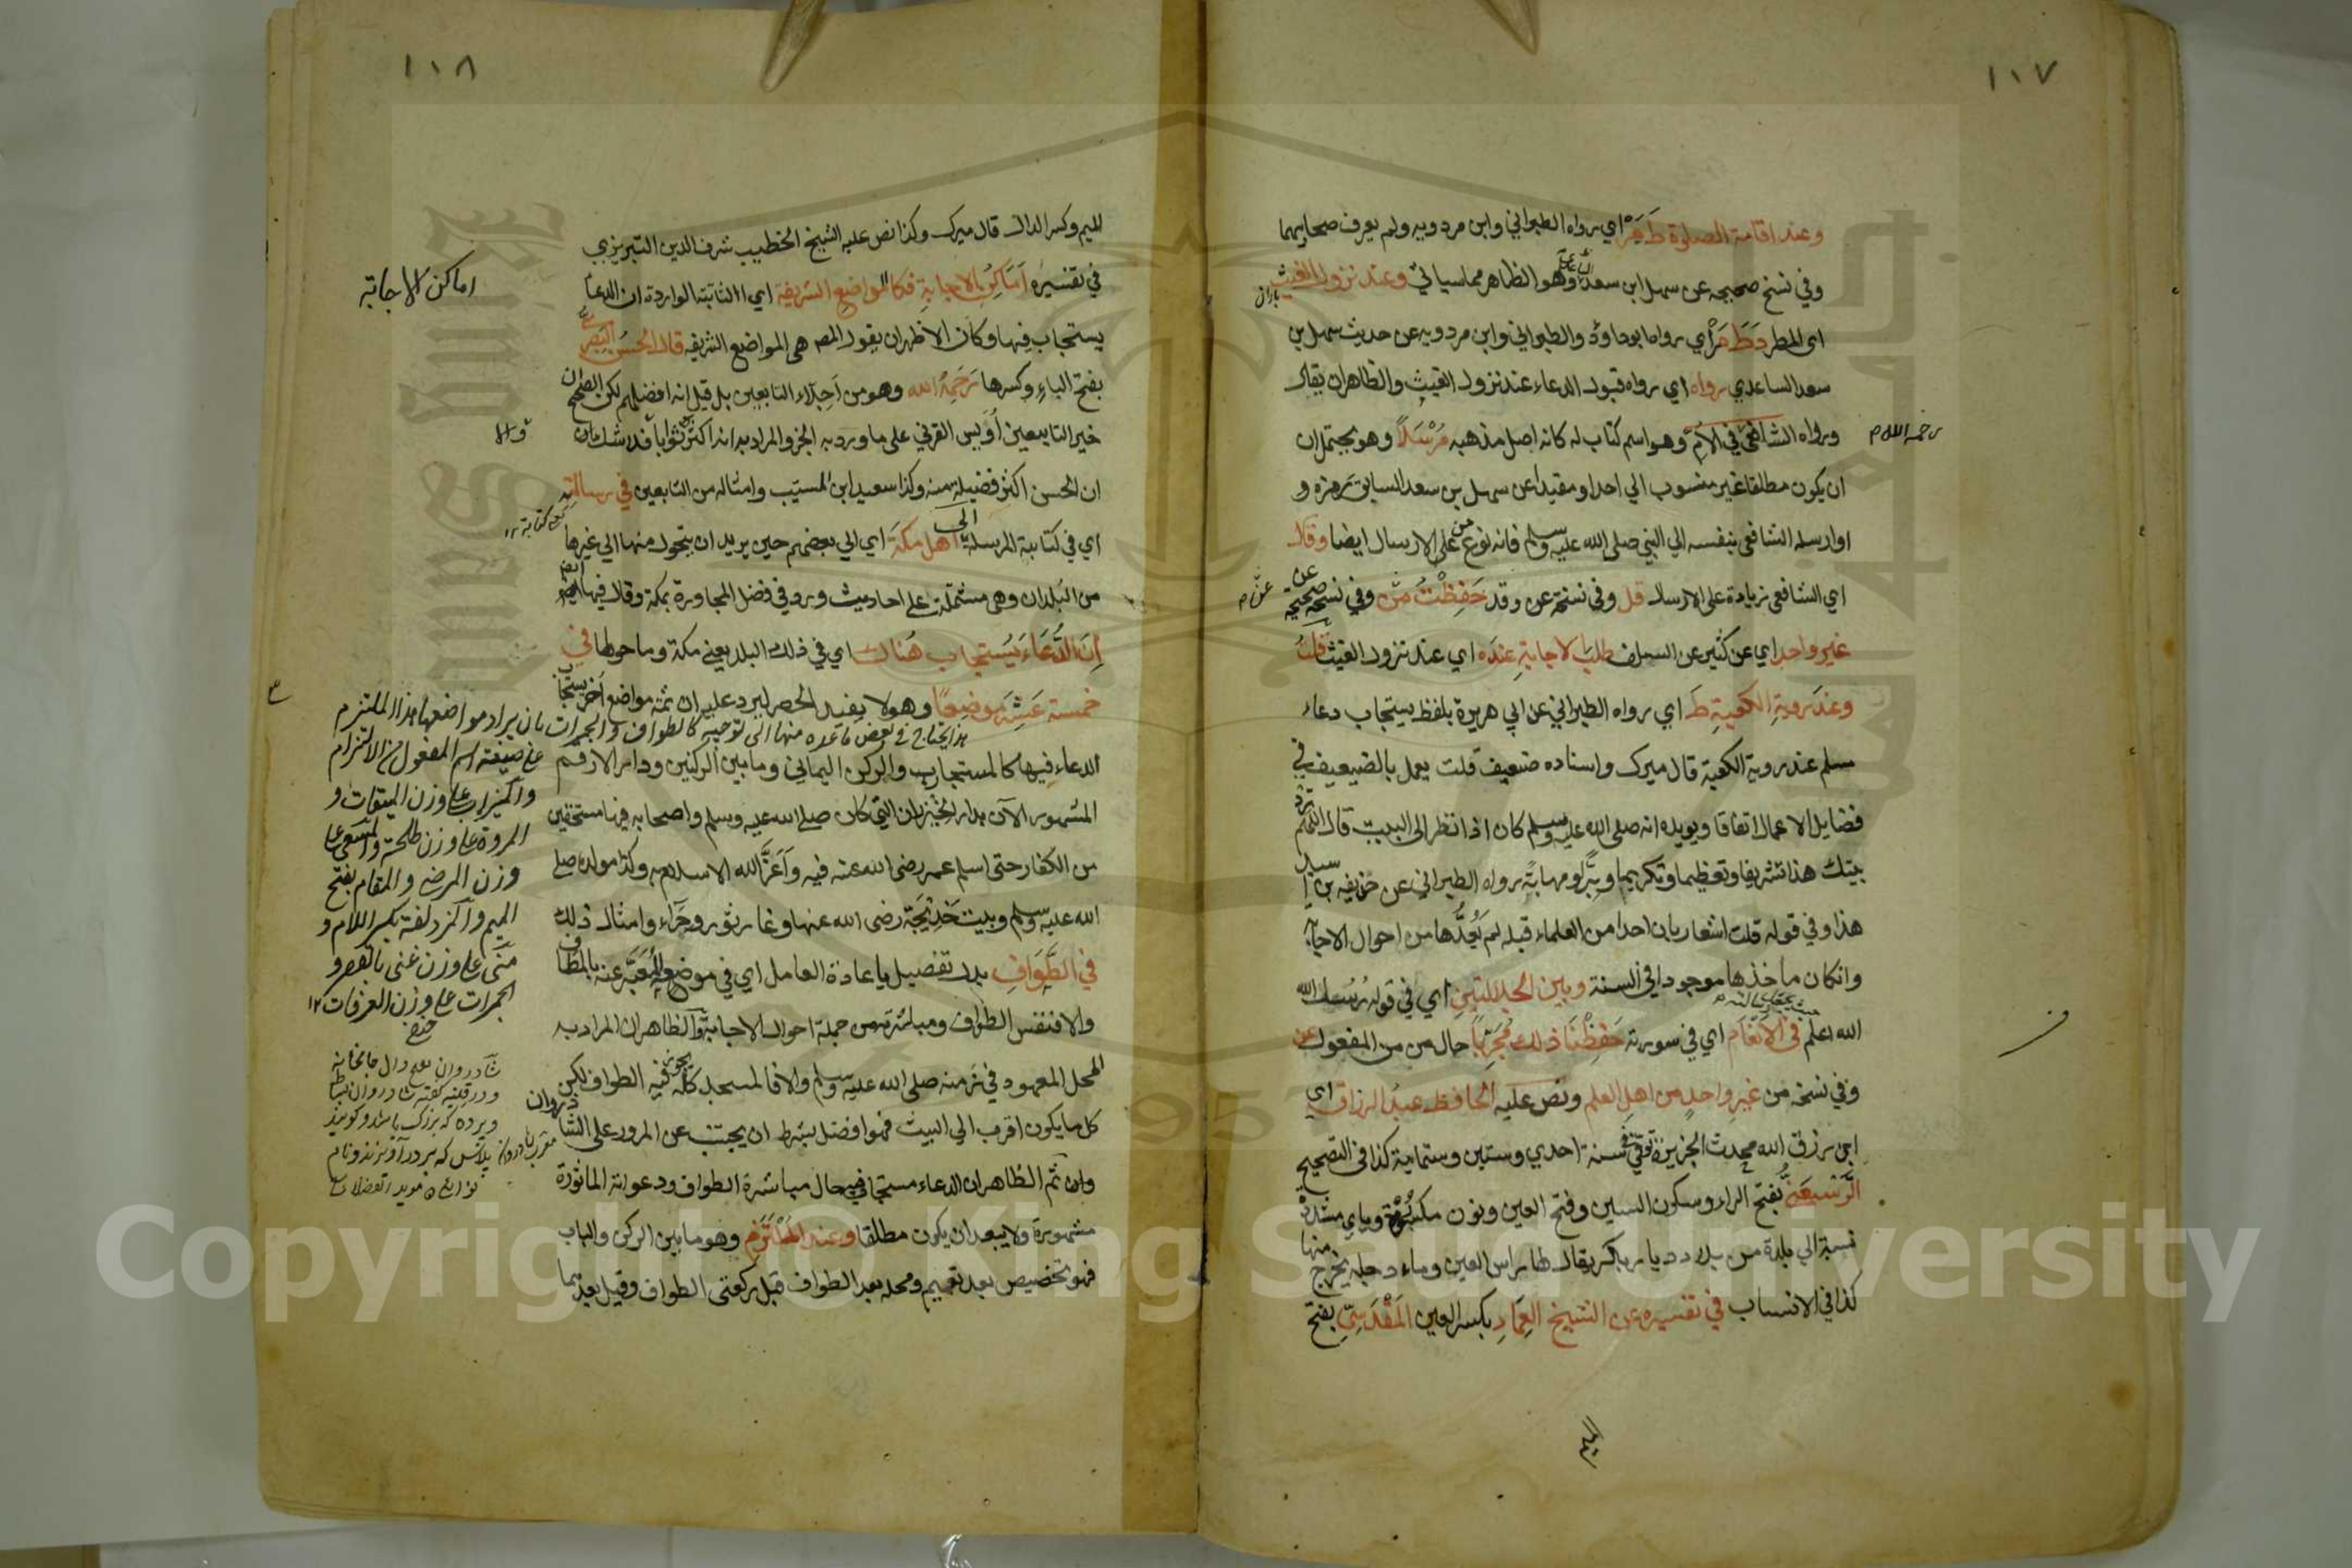 ١٠٧
وعند اقامة الصلوة ط مر اي رواه الطبراني وابن مردويه ولم يعرف صحابيهما
وفي نسخ صحيحه عن سهل ابن سعد وهو الظاهر مما سيأتي وعند نزول الغيث
باران
اى المطر د ط مر أي رواه ابو داود والطبراني وابن مردويه عن حديث سهل بن
سعد الساعدي رواه اي رواه قبول الدعاء عند نزول الغيث والظاهر ان يقال
ورواه الشافعي في الأم وهو اسم كتاب له كانه اصل مذهبه مرسلا وهو يحتمل ان
ان يكون مطلقا غير منسوب الي احد او مقيدا عن سهل بن سعد السابق رمزه و
او ارسله الشافعي بنفسه الي النبي صلى الله عليه وسلم فانه نوع من على الارسال ايضا وقال
اي الشافعي زيادة على الارسال قل وفي نسخه عن وقد حفظت من وفي نسخة صحيحة
عن
غير واحد اي عن كثير عن السلف طلب الاجابة عنده اي عند نزول الغيث قلت
وعند روية الكعبة ط اي رواه الطبراني عن ابي هريرة بلفظ يستجاب دعاء
مسلم عند روية الكعبة قال ميرك واسناده ضعيف قلت يعمل بالضعيف في
فضايل الاعمال اتفاقا ويويده انه صلى الله عليه وسلم كان اذا نظر الى البيت قال اللهم زد
بيتك هذا تشريفا وتعظيما وتكريما وبرا ومهابة رواه الطبراني عن حذيفه بن اسيد
هذا وفي قوله قلت اشعار بان احدا من العلماء قبله لم يعدها من احوال الاجابة
وانكان ماخذها موجودا في السنة وبين الجلالتين اي في قوله رسل الله
الله اعلم في الانعام اي في سورته حفظنا ذلك مجربا حال من من المفعول عن
وفي نسخة من غير واحد من اهل العلم ونص عليه الحافظ عبد الرزاق اي
ابن رزق الله محدث الجزيرة توفي في سنة احدي وستين وستماية كذا في التصحيح
الرسعني بفتح الراء وسكون السين وفتح العين ونون مكسورة وياي مشددة
نسبة الي بلدة من بلاد ديار باكر يقال لها راس العين وماء دجلة يخرج منها
كذا في الانساب في تفسيره عن الشيخ العماد بكسر العين المقدسي بفتح
الميم
١٠٨
الميم وكسر الدال قال ميرك وكذا نص عليه الشيخ الخطيب شرف الدين التبريزي
في تفسيره اماكن الاجابة فكالمواضع الشريفة اي الثابتة الواردة ان الدعاء
اماكن الاجابة
يستجاب فيها وكان الاظهر ان يقول المصـ هي المواضع الشريفه قال الحسن البصري
بفتح الباء وكسرها رحمه الله وهو من اجلاء التابعين بل قيل انه افضلهم لكن الصحيح ان
خير التابعين أويس القرني على ما ورد به الخبر والمراد به انه اكثر ثوابا فلا شك ان
ان الحسن اكثر فضيلة منه وكذا سعيد ابن المسيب وامثاله من التابعين في رسالته
اي في كتابة المرسلة الى اهل مكة اي الي بعضهم حين يريد ان يتحول منها الي غيرها
من البلدان وهي مشتملة على احاديث وروي في فضل المجاورة بمكة وقال فيها ايضا
إن الدعاء يستجاب هناك اي في ذلك البلد يعني مكة وما حولها في
خمسة عشر موضعا وهو لا يفيد الحصر ليرد عليه ان ثمه مواضع اخر يستجاب
الدعاء فيها كالمستجاب والركن اليماني وما بين الركنين ودار الارقم
المشهور الآن بدار الخيزران التي كان صلي الله عليه وسلم واصحابه فيها مستخفين
من الكفار حتى اسلم عمر رضى الله عنه فيه وأعز الله الاسلام به وكذا مولده صلى
الله عليه وسلم وبيت خديجة رضى الله عنها وغار ثور وحراء وامثال ذلك
في الطواف بدل تفصيل باعادة العامل اي في موضع المعبر عنه بالمطاف
والا فنفس الطواف ومباشرته من جملة احوال الاجابة والظاهر ان المراد به
المحل المعهود في زمنه صلى الله عليه وسلم والا فالمسجد كله يجوز فيه الطواف لكن
كل ما يكون اقرب الي البيت فهو افضل بشرط ان يجتنب عن المرور على الشاذروان
وان ثم الظاهر ان الدعاء مستجاب فيه حال مباشرة الطواف ودعواته الماثورة
مشهورة ولا يبعد ان يكون مطلقا وعند الملتزم وهو ما بين الركن والباب
فهو تخصيص بعد تعميم ومحله بعد الطواف قبل ركعتى الطواف وقيل بعدهما
هذا يحتاج في بعض ما عده منها الى توجيه كالطواف والجمرات بان يراد مواضعها هذا الملتزم
على صيغة اسم المفعول من الالتزام
والميزاب على وزن الميقات و
المروة على وزن طلحة والمسعى على
وزن المرضى والمقام بفتح
الميم والمزدلفة بكسر اللام و
منى على وزن غنى بالقصر و
الجمرات على وزن العرفات ١٢
Copyright © King Saud University